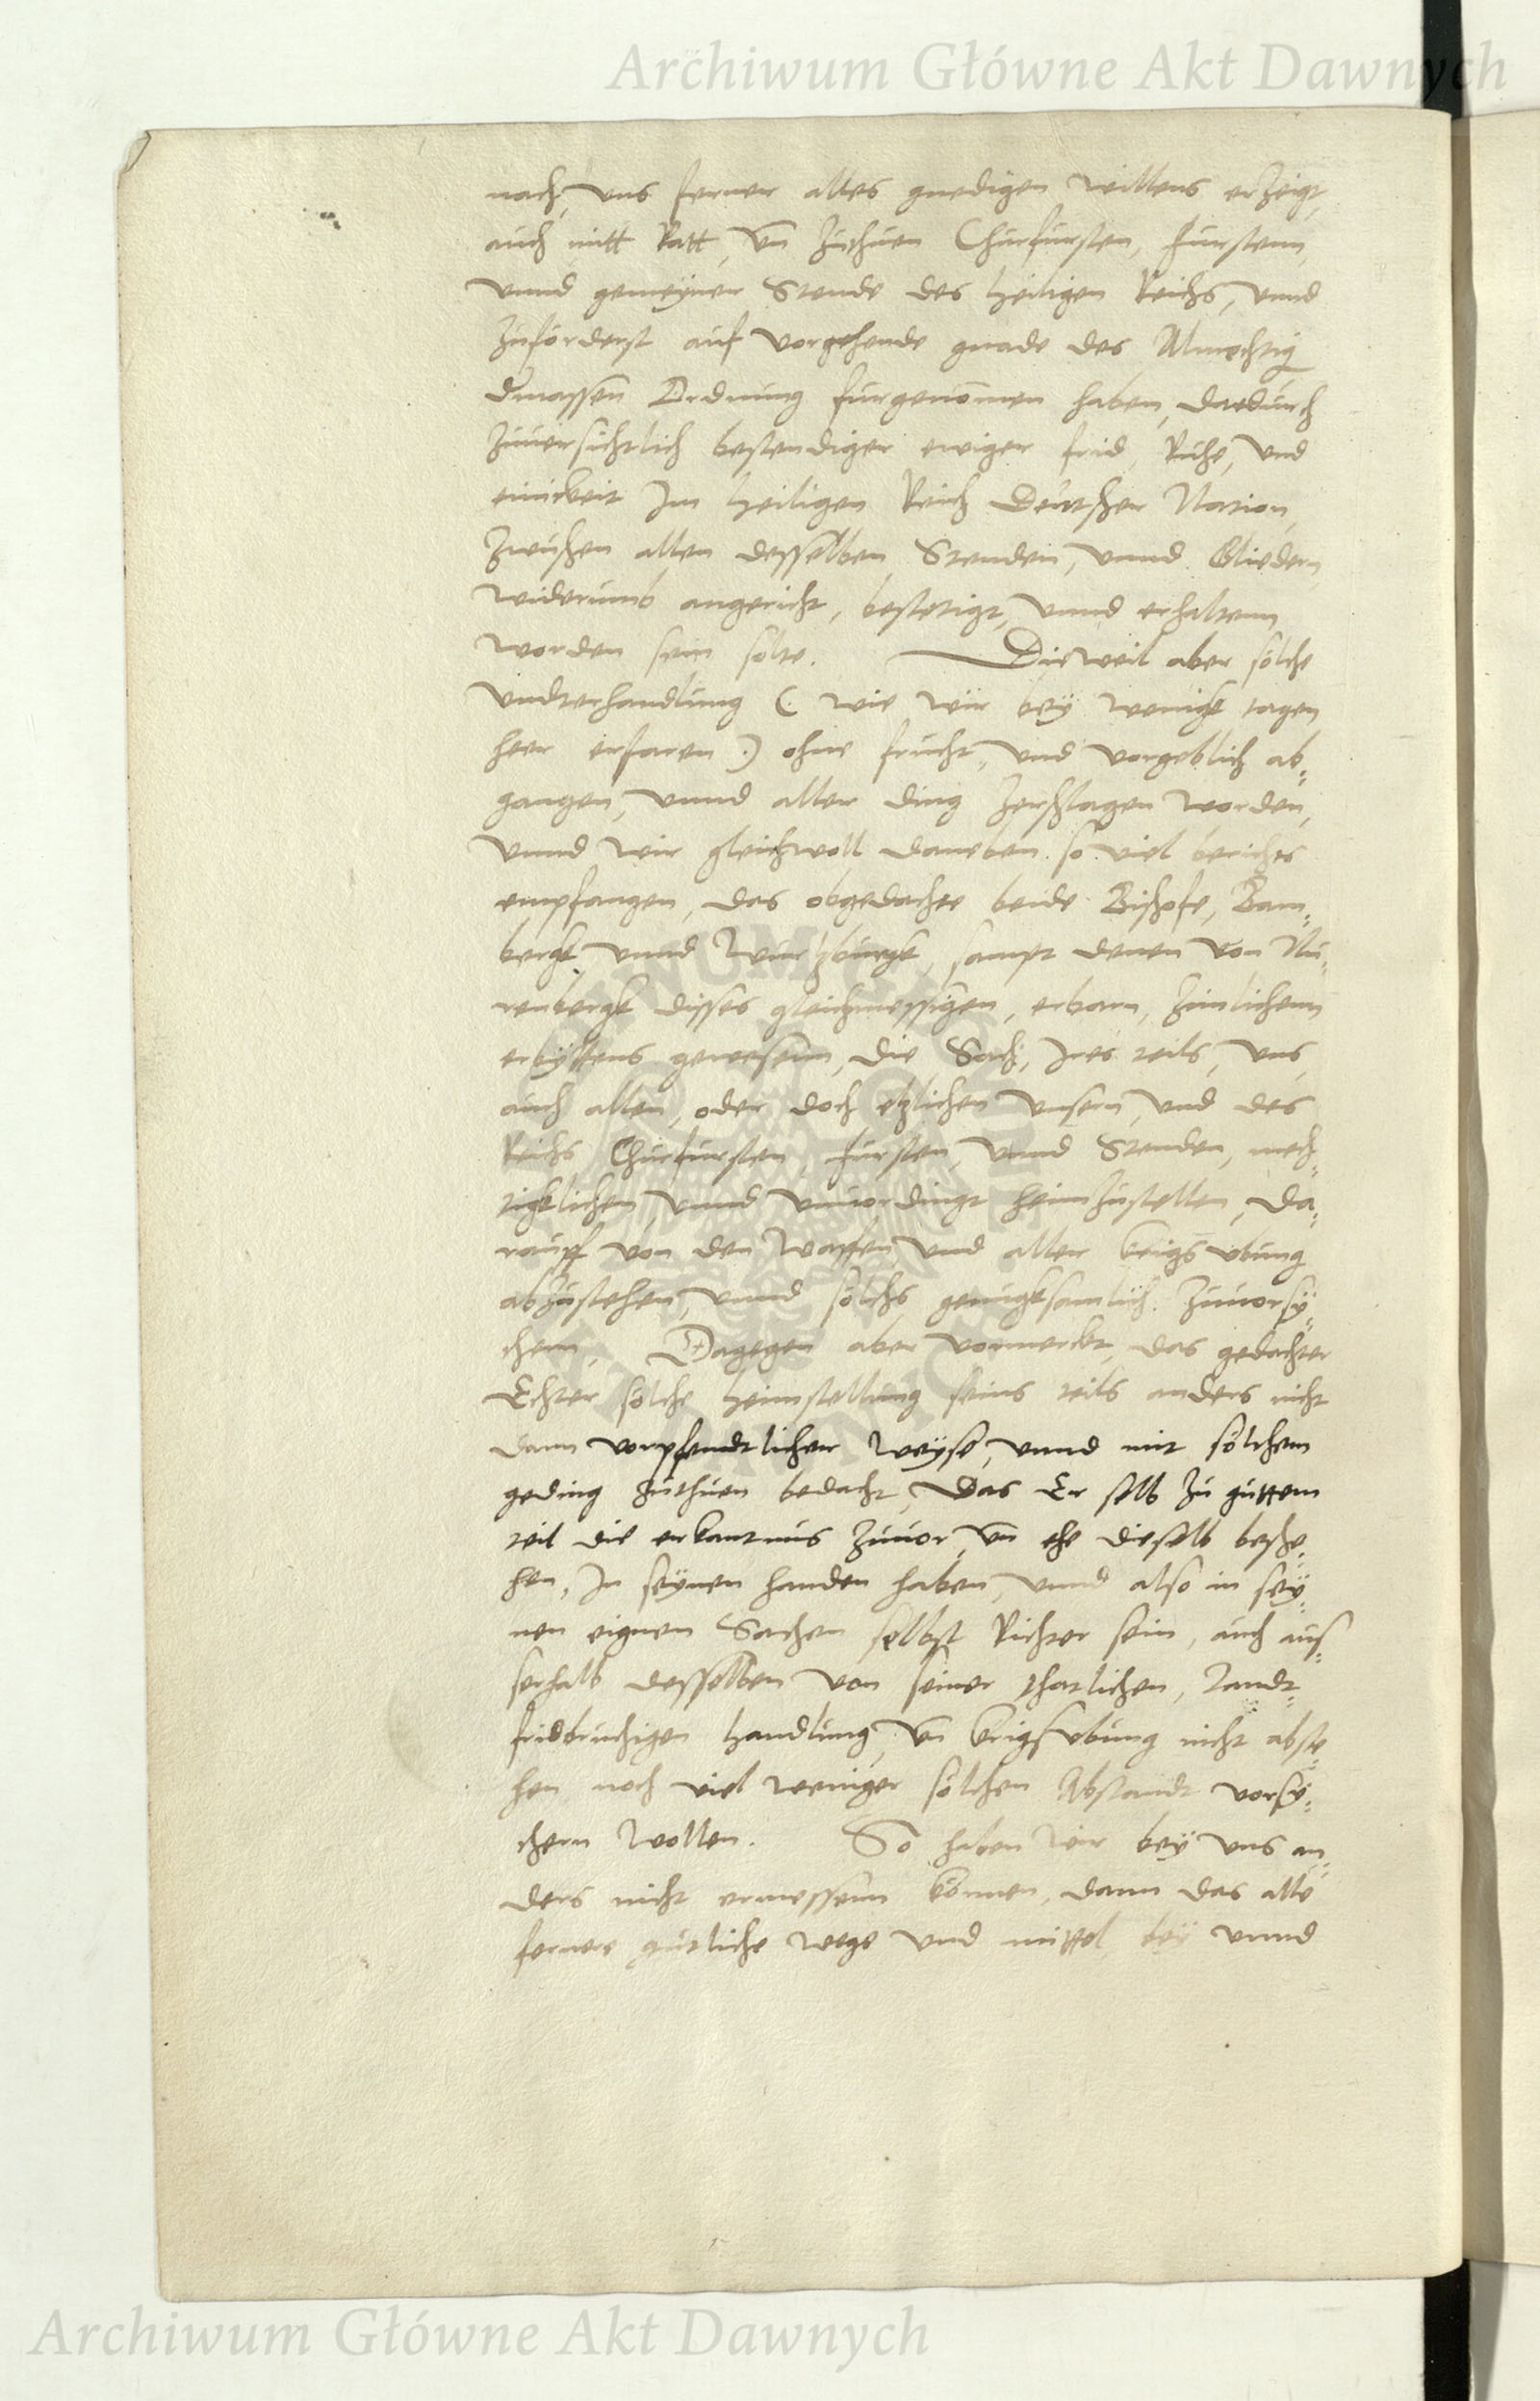 Archiwum Główne Akt Dawnych
nach, vns ferner alles gnedigen willens erzeigt,
auch mitt Ratt, vn zuthuen Churfursten, Furstenn,
vnnd gemeyner Stende des heiligen Reichs, vnnd
zuforderst auf vorgehende gnade des Almechtig
dmassen Ordnung furgenommen haben, dardurch
zuuersichtlich bestendiger ewiger frid, Ruhe, vnd
einickeit Im heiligen Reich Deutscher Nation,
zwuschen allen desselben Stenden, vnnd Gliedern
widerumb angericht, bestetigt, vnnd erhaltenn
worden sein solte. Dieweil aber solche
vndterhandlung (. wie wir bey wenigk tagen
heer erfaren .) ohne frucht, vnd vorgeblich ab=
gangen, vnnd aller ding zerschlagen worden,
vnnd wir gleichwoll daneben so viel berichts
empfangen, das obgedachte beide Bischofe, Bam=
bergk vnnd Wurtzburgk, sampt denen von Nu=
renbergk disses gleichmessigen, erbarn, zimlichenn
erbyttens gewesenn, die Sach, Ires teils, vns,
auch allen, oder doch etzlichen vnsern, vnd des
Reichs Churfursten, Fursten, vnnd Stenden, mech=
tigklichen, vnnd vnuordingt heimzustellen, da=
rauff von den Waffen, vnd aller krigs vbung
abzustehen, vnnd solchs genugksamlich zuuorsy=
chern, Dagegen aber vormerckt, das gedachter
Echter solche heimstellung seins teils anders nicht
dann vorpfendtlicher weyse, vnnd mit solchem
geding zuthuen bedacht, Das Er selb zu guttem
teil die erkantnus zuuor, vn ehe dieselb besche=
hen, In seynen handen haben, vnnd also in sey=
nen eignen Sachen selbst Richter sein, auch aus=
serhalb desselben von seiner thatlichen, Landt=
fridbruchigen handlung, vn krigsvbung nicht abste=
hen noch viel weniger solchen Abstandt vorsy=
chern wollen. So haben wir bey vns an=
ders nicht ermessenn konnen, dann das alle
fernere gutliche wege vnd mittel bey vnnd
Archiwum Główne Akt Dawnych